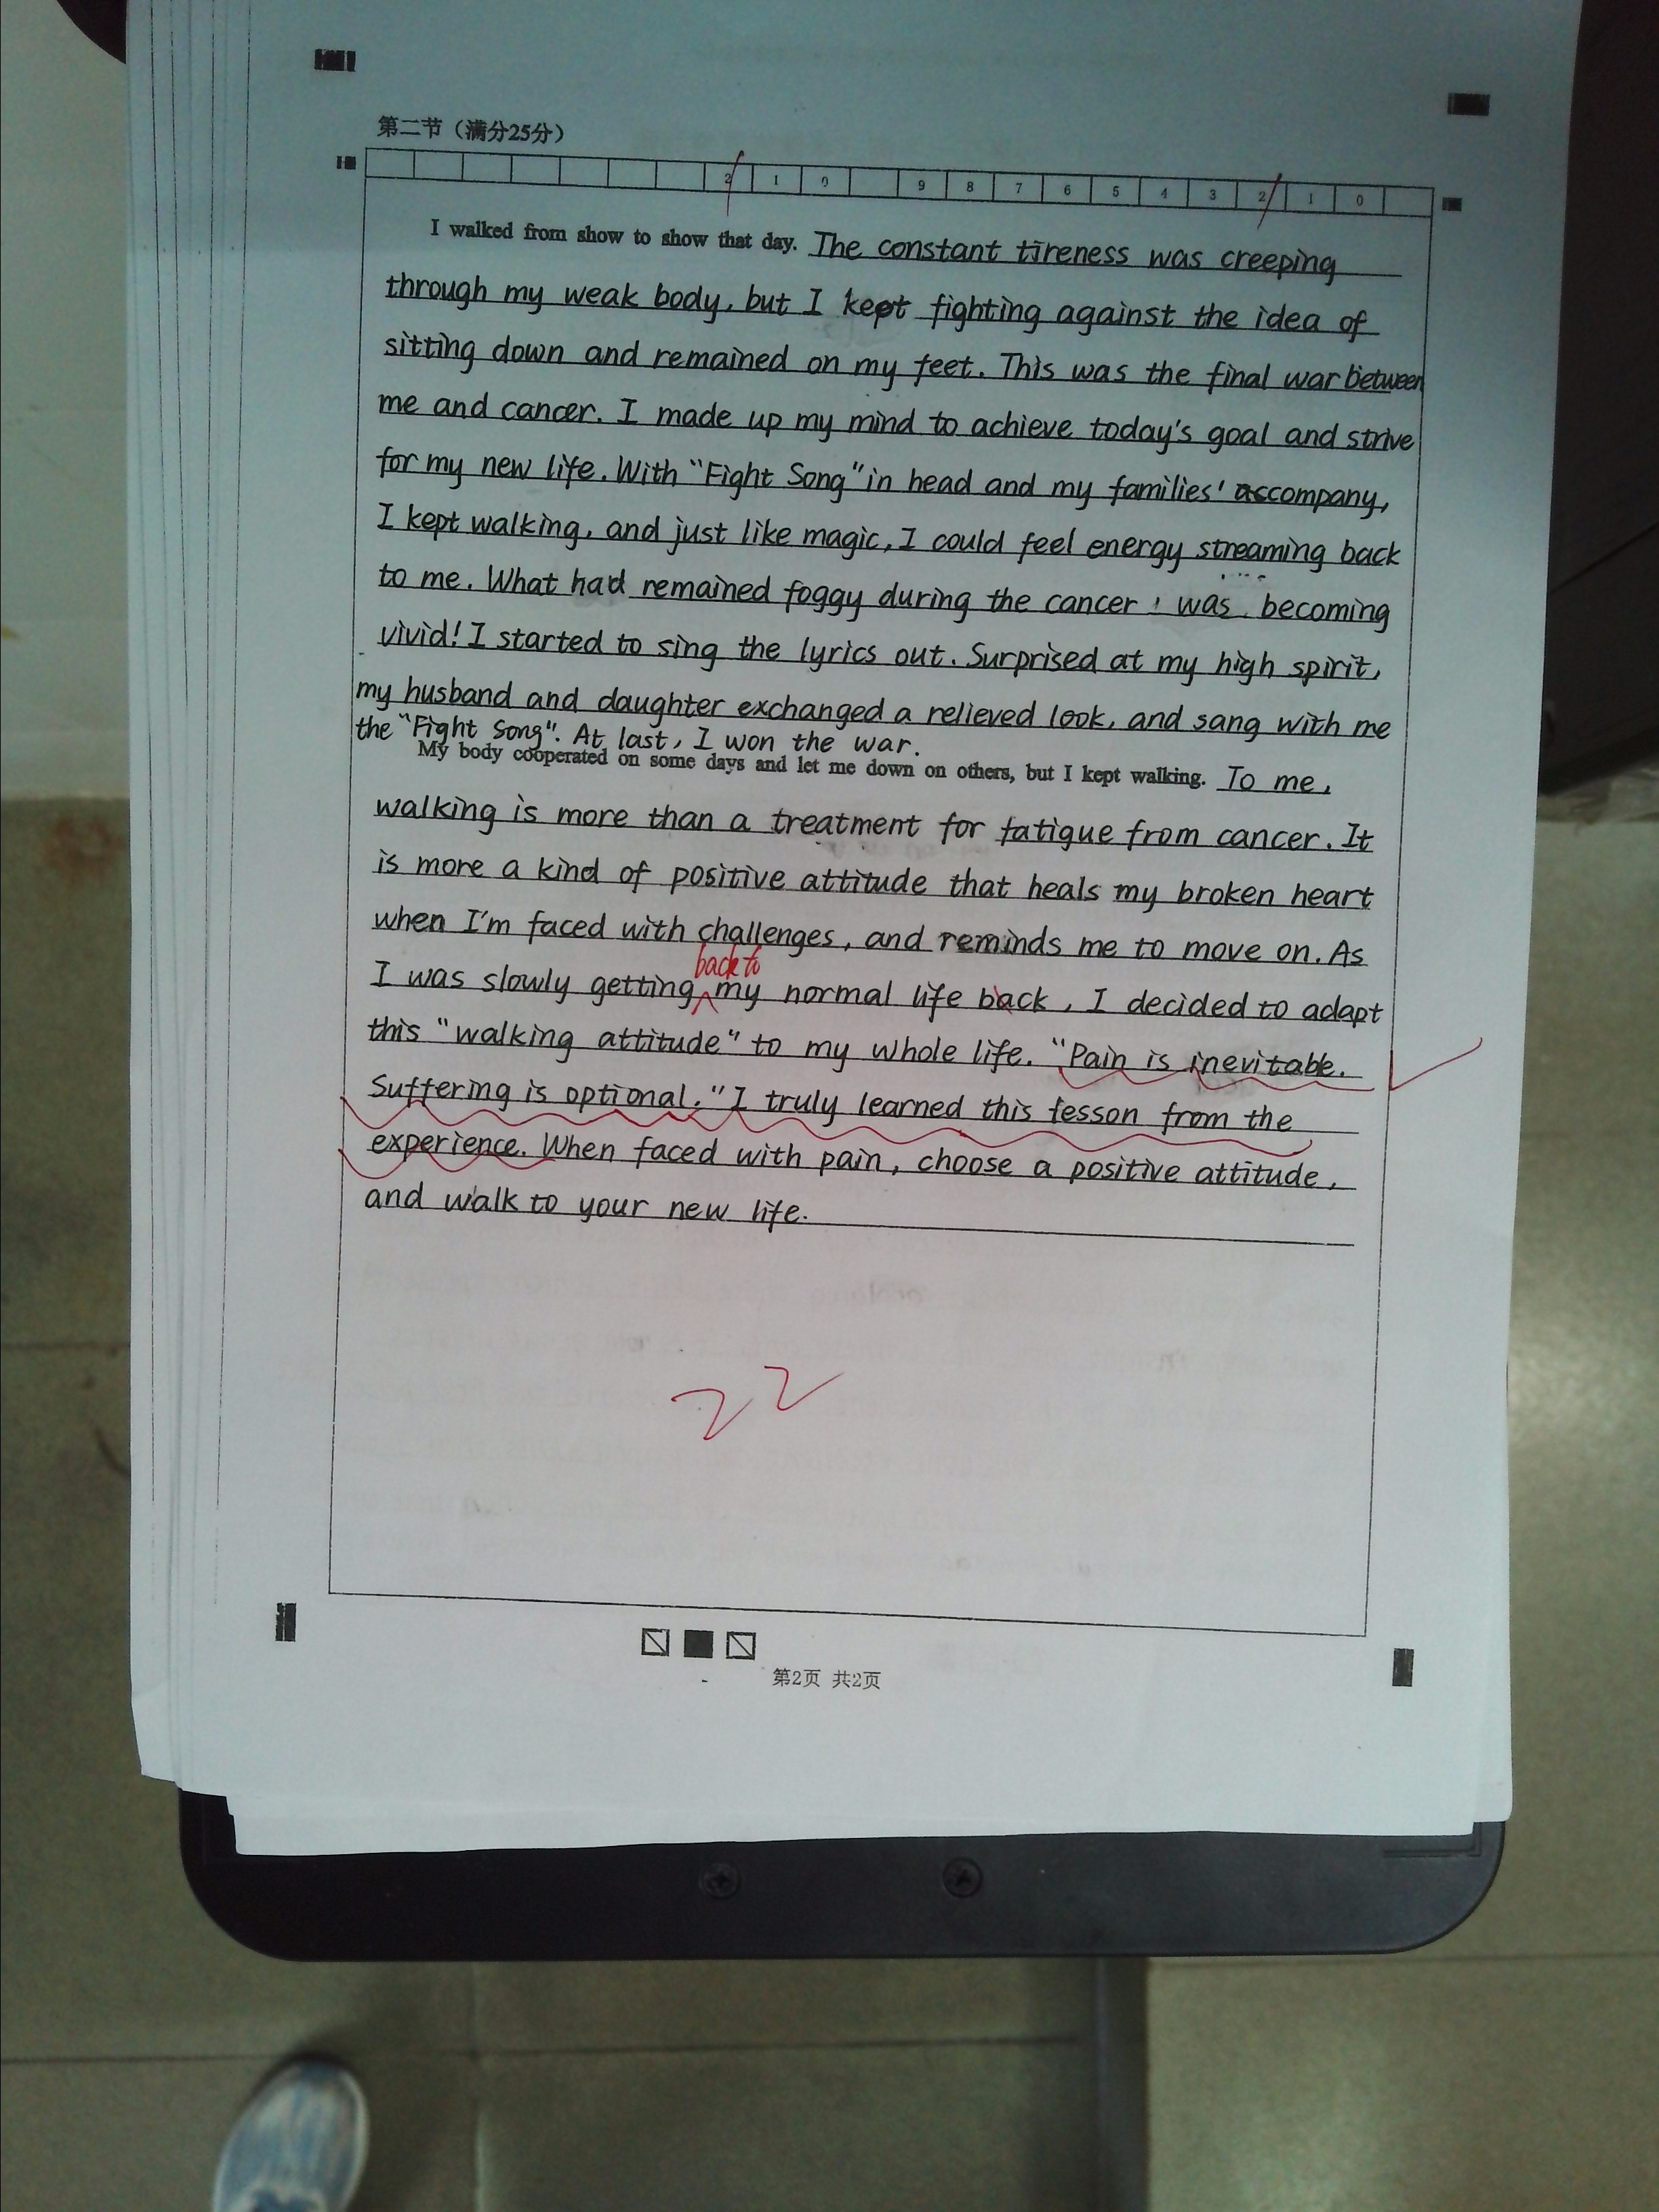 第二节（满分25分）
2 1 0 9 8 7 6 5 4 3 2 1 0
I walked from show to show that day. The constant tireness was creeping
through my weak body, but I kept fighting against the idea of
sitting down and remained on my feet. This was the final war between
me and cancer. I made up my mind to achieve today's goal and strive
for my new life. With "Fight Song" in head and my families' accompany,
I kept walking, and just like magic, I could feel energy streaming back
to me. What had remained foggy during the cancer was becoming
vivid! I started to sing the lyrics out. Surprised at my high spirit,
my husband and daughter exchanged a relieved look, and sang with me
the "Fight Song". At last, I won the war.
My body cooperated on some days and let me down on others, but I kept walking. To me,
walking is more than a treatment for fatigue from cancer. It
is more a kind of positive attitude that heals my broken heart
when I'm faced with challenges, and reminds me to move on. As
back to
I was slowly getting my normal life back, I decided to adapt
this "walking attitude" to my whole life. "Pain is inevitable.
Suffering is optional." I truly learned this lesson from the
experience. When faced with pain, choose a positive attitude,
and walk to your new life.
22
第2页 共2页